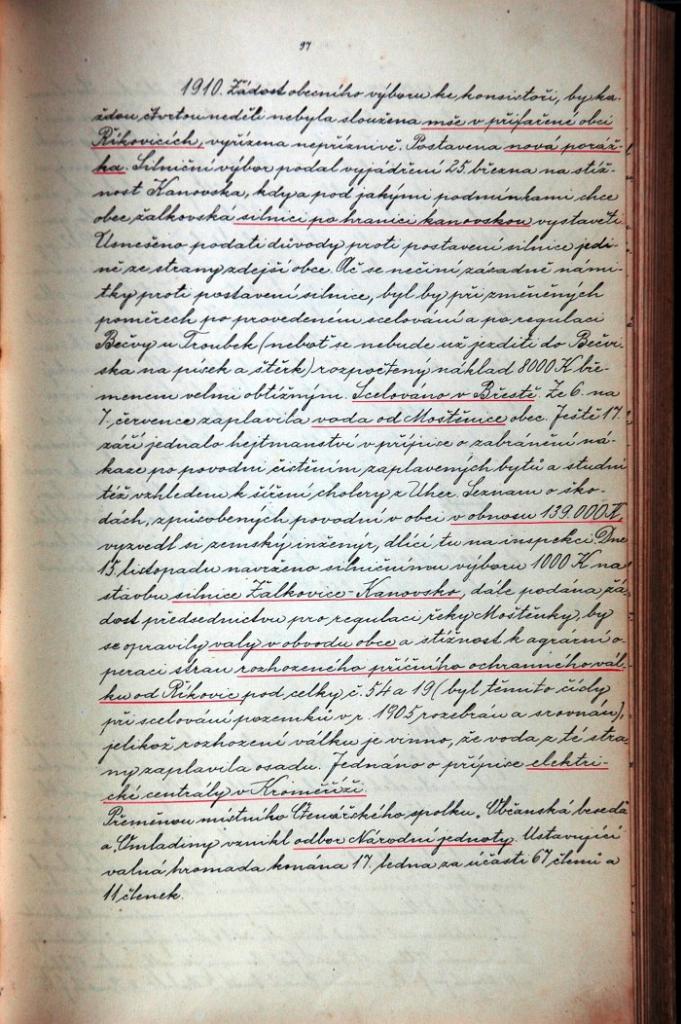 97
1910. Žádost obecního výboru ke konsistoři, by ka-
ždou čtvrtou neděli nebyla sloužena mše v přifařené obci
Říkovicích, vyřízena nepříznivě. Postavena nová poráž-
ka. Silniční výbor podal vyjádření 25. března na stíž-
nost Kanovska, kdy a pod jakými podmínkami chce
obec žalkovská silnici po hranici kanovskou vystavěti.
Usnešeno podati důvody proti postavení silnice jedi-
ně ze strany zdejší obce. Ač se nečiní zásadně námi-
tky proti postavení silnice, byl by při změněných
poměrech po provedeném scelování a po regulaci
Bečvy u Troubek (neboť se nebude už jezditi do Bečvi-
ska na písek a štěrk) rozpočtený náklad 8000 K bře-
menem velmi obtížným. Scelováno v Břestě. Ze 6. na
7. července zaplavila voda od Moštěnice obec. Ještě 17.
září jednalo hejtmanství v přípise o zabránění ná-
kaze po povodni čistěním zaplavených bytů a studní
též vzhledem k šíření cholery z Uher. Seznam o ško-
dách, způsobených povodní v obci v obnosu 139.000 K,
vyzvedl si zemský inženýr, dlící tu na inspekci. Dne
15. listopadu navrženo silničnímu výboru 1000 K na
stavbu silnice Žalkovice-Kanovsko, dále podána žá-
dost předsednictvu pro regulaci řeky Moštěnky, by
se opravily valy v obvodu obce a stížnost k agrární o-
peraci stran rozhozeného příčního ochranného vál-
ku od Říkovic pod celky č. 54 a 19 (byl těmito čísly
při scelování pozemků v r. 1905 rozebrán a srovnán),
jelikož rozhození válku je vinno, že voda z té stra-
ny zaplavila osadu. Jednáno o přípise elektri-
cké centrály v Kroměříži.
Přeměnou místního Čtenářského spolku „Občanská beseda“
a „Omladiny“ vznikl odbor Národní jednoty. Ustavující
valná hromada konána 17. ledna za účasti 67 členů a
11 členek.